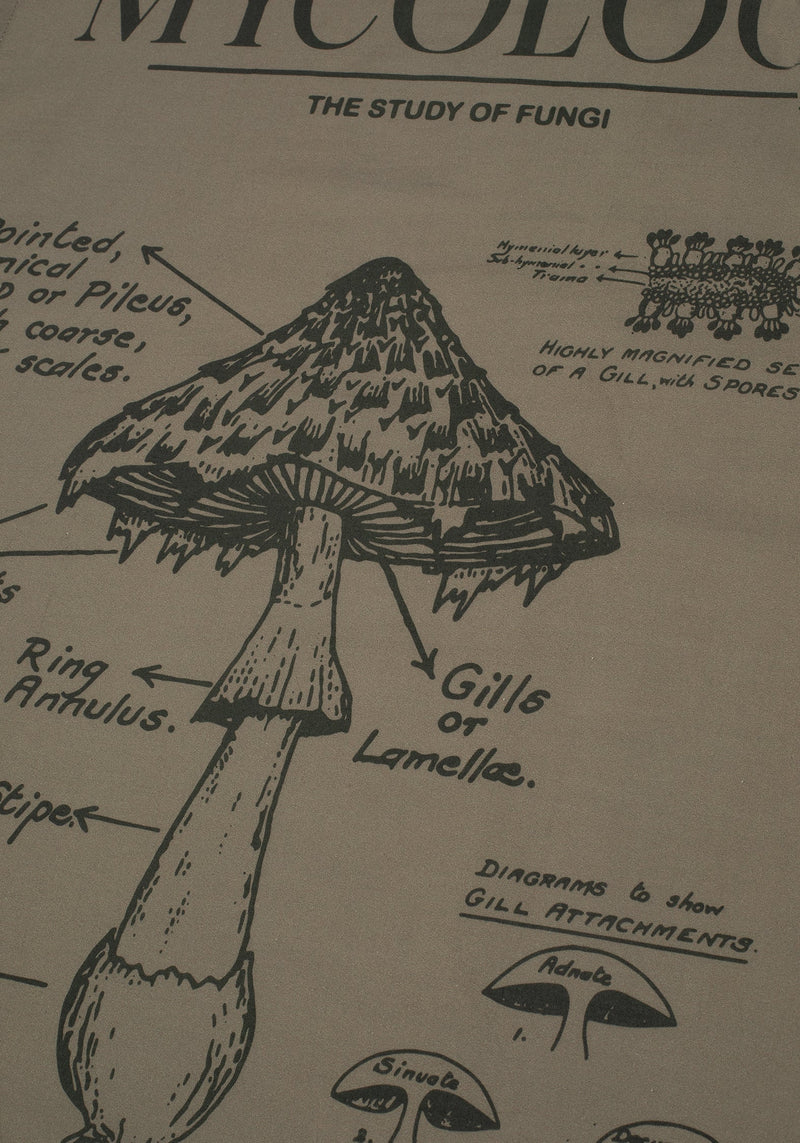 MYCOLOG
THE STUDY OF FUNGI
Pointed,
nical
or Pileus,
coarse,
scales.
Hymenial layer
Sub-hymenial "
Trama
HIGHLY MAGNIFIED SE
OF A GILL, with SPORES
Ring
Annulus.
Gills
or
Lamellæ.
Stipe.
DIAGRAMS to show
GILL ATTACHMENTS.
Adnate
1.
Sinuate
2.